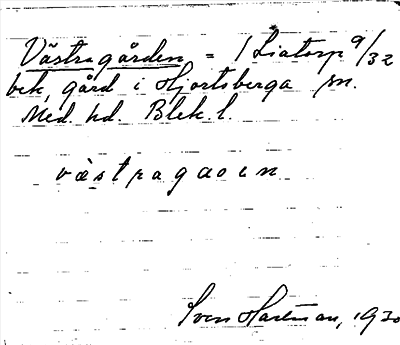 Västragården = 1 Liatorp 9/32
bek. gård i Hjortsberga sn.
Med. hd. Blek. l.
västragaoen
Sven Hartman, 1930